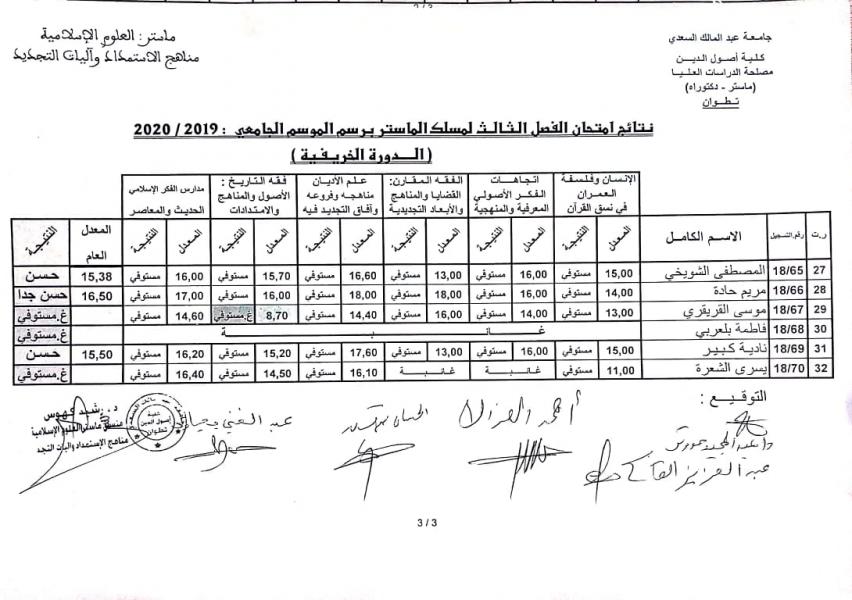 2 / 3
جامعة عبد المالك السعدي
كلية أصول الدين
مصلحة الدراسات العليا
(ماستر - دكتوراه)
تطوان
ماستر: العلوم الإسلامية
مناهج الاستمداد وآليات التجديد
نتائج امتحان الفصل الثالث لمسلك الماستر برسم الموسم الجامعي : 2019 / 2020
( الدورة الخريفية )
الإنسان وفلسفة العمران في نسق القرآن
اتجاهات الفكر الأصولي المعرفية والمنهجية
الفقه المقارن: القضايا والمناهج والأبعاد التجديدية
علم الأديان مناهجه وفروعه وآفاق التجديد فيه
فقه التاريخ : الأصول والمناهج والامتدادات
مدارس الفكر الإسلامي الحديث والمعاصر
ر.ت رقم التسجيل الاسم الكامل المعدل النتيجة المعدل النتيجة المعدل النتيجة المعدل النتيجة المعدل النتيجة المعدل النتيجة المعدل العام النتيجة
27 18/65 المصطفى الشويخي 15,00 مستوفي 16,00 مستوفي 13,00 مستوفي 16,60 مستوفي 15,70 مستوفي 16,00 مستوفي 15,38 حسن
28 18/66 مريم حادة 14,00 مستوفي 16,00 مستوفي 18,00 مستوفي 18,00 مستوفي 16,00 مستوفي 17,00 مستوفي 16,50 حسن جدا
29 18/67 موسى القريقري 13,00 مستوفي 14,00 مستوفي 16,00 مستوفي 14,40 مستوفي 8,70 غ.مستوفي 14,60 مستوفي غ.مستوفي
30 18/68 فاطمة بلعربي غائبة غ.مستوفي
31 18/69 نادية كبير 15,00 مستوفي 16,00 مستوفي 13,00 مستوفي 17,60 مستوفي 15,20 مستوفي 16,20 مستوفي 15,50 حسن
32 18/70 يسرى الشعرة 11,00 مستوفي غائبة غائبة 16,10 مستوفي 14,50 مستوفي 16,40 مستوفي غ.مستوفي
التوقيع :
أحمد الغزالي
عبد الغني يحياوي
د. رشيد كهوس
منسق ماستر العلوم الإسلامية
مناهج الإستمداد وآليات التجد
3 / 3